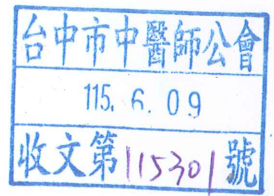 台中市中醫師公會
115.6.09
收文第115301號